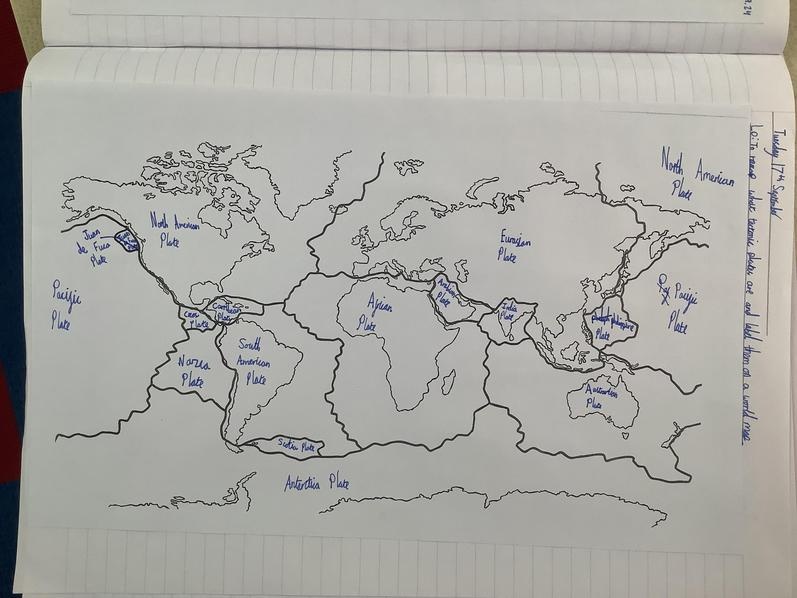 9.24
Tuesday 17th September
Lo: To remap where tectonic plates are and label them on a world map.
North American
Plate
North American
Plate
Juan
de Fuca
Plate
Eurasian
Plate
Pacific
Plate
Pacific
Plate
Arabian
Plate
India
Plate
Philippine
Plate
Caribbean
Plate
Plate
African
Plate
South
American
Plate
Nazca
Plate
Australian
Plate
Scotia Plate
Antarctica Plate